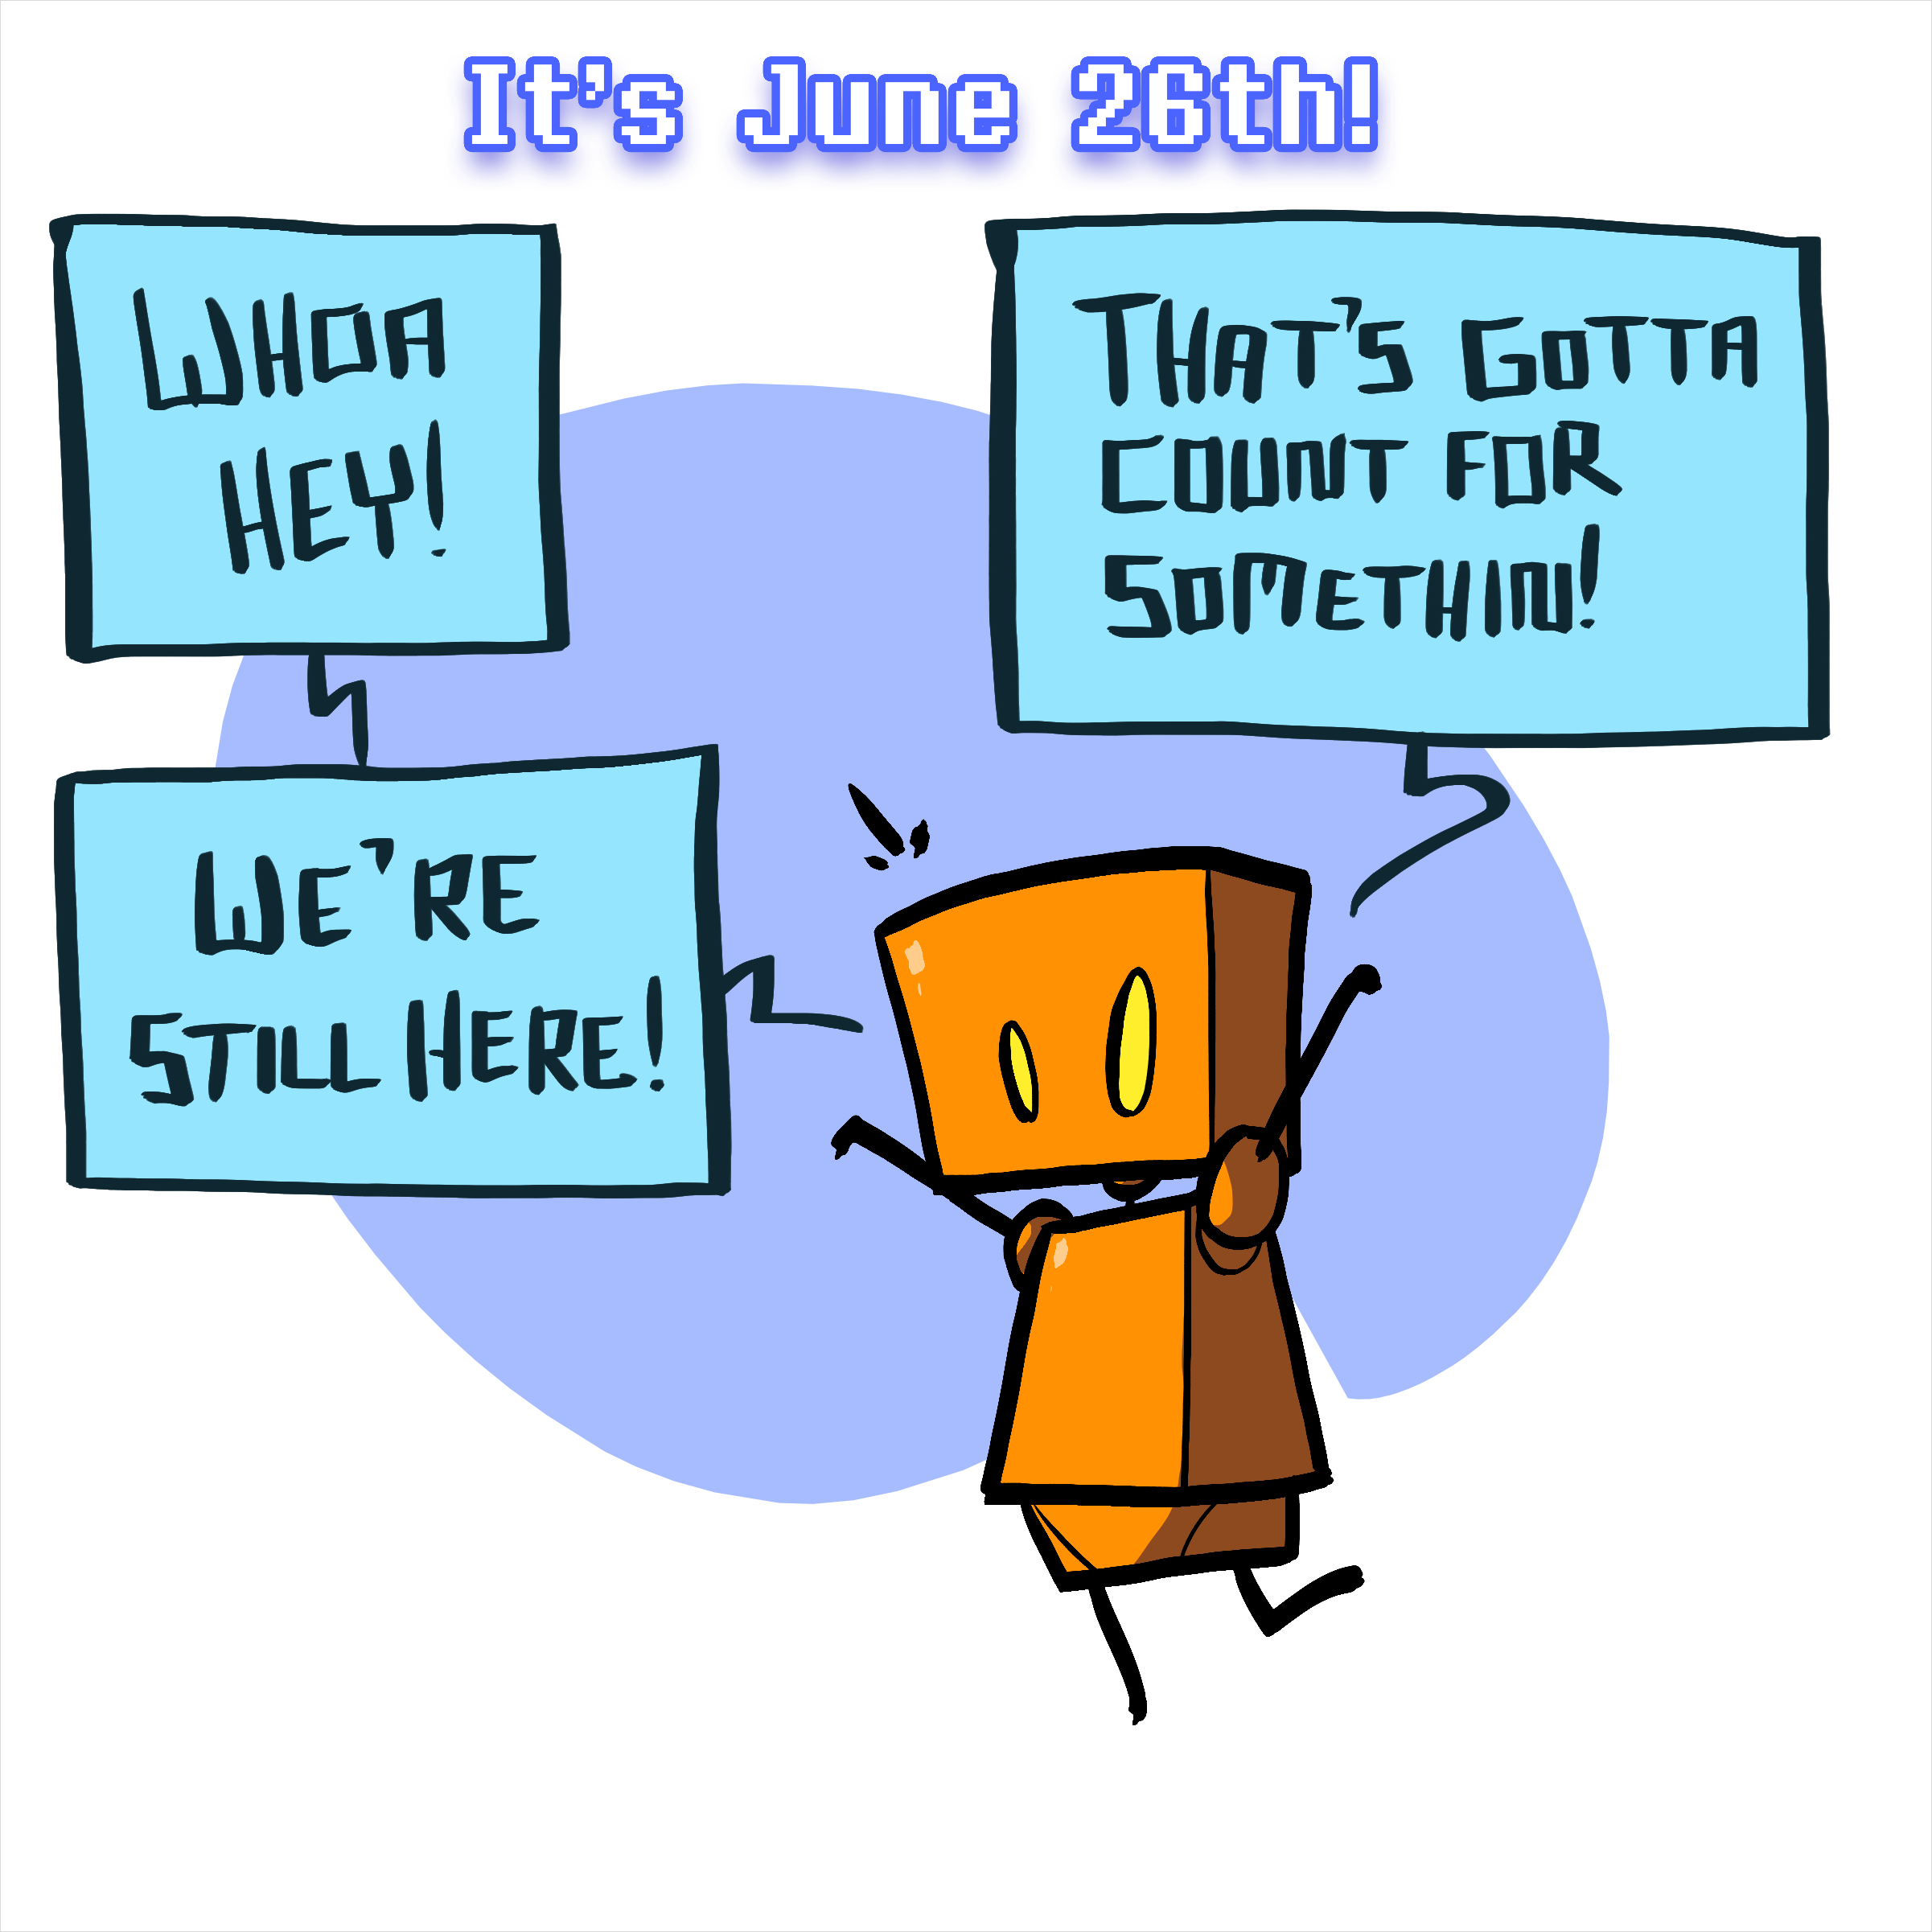 It's June 26th!
WHOA
HEY!
WE'RE
STILL HERE!
THAT'S GOTTA
COUNT FOR
SOMETHIN!